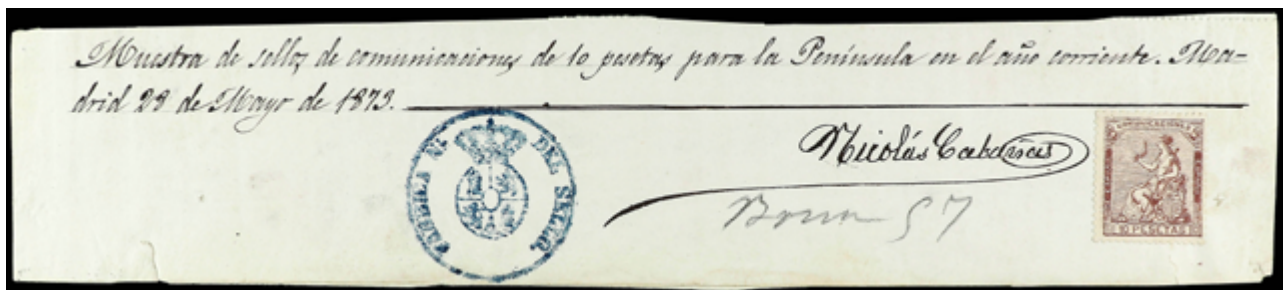 Muestra de sellos de comunicaciones de 10 pesetas para la Península en el año corriente. Ma-
drid 28 de Mayo de 1873.
FABRICA N. DEL SELLO.
Nicolás Cabañas
57
COMUNICACIONES
10 PESETAS